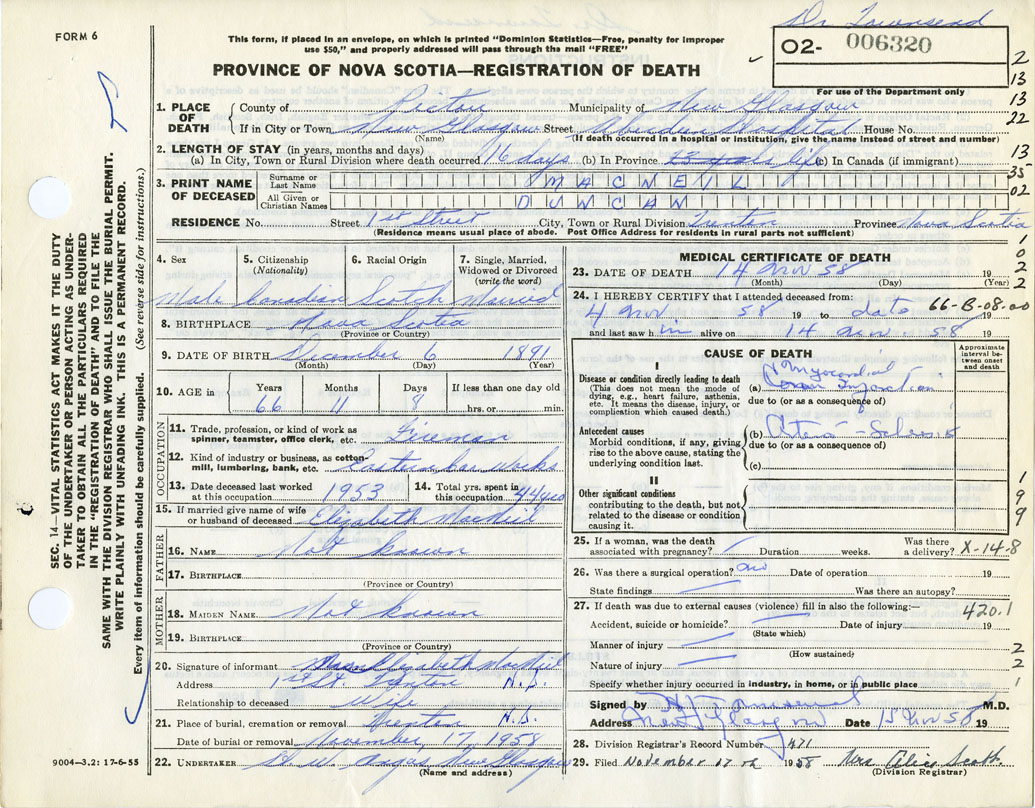 Dr Townsend
FORM 6
This form, if placed in an envelope, on which is printed "Dominion Statistics—Free, penalty for improper
use $50," and properly addressed will pass through the mail "FREE"
O2- 006320
For use of the Department only
PROVINCE OF NOVA SCOTIA—REGISTRATION OF DEATH
2
13
13
22
13
35
02
1
0
2
2
SEC. 14—VITAL STATISTICS ACT MAKES IT THE DUTY
OF THE UNDERTAKER OR PERSON ACTING AS UNDER-
TAKER TO OBTAIN ALL THE PARTICULARS REQUIRED
IN THE "REGISTRATION OF DEATH" AND TO FILE THE
SAME WITH THE DIVISION REGISTRAR WHO SHALL ISSUE THE BURIAL PERMIT.
WRITE PLAINLY WITH UNFADING INK. THIS IS A PERMANENT RECORD.
Every item of information should be carefully supplied. (See reverse side for instructions.)
1. PLACE OF DEATH
County of Pictou Municipality of New Glasgow
If in City or Town New Glasgow Street Aberdeen Hospital House No.
(Name) (If death occurred in a hospital or institution, give the name instead of street and number)
2. LENGTH OF STAY (in years, months and days)
(a) In City, Town or Rural Division where death occurred 16 days (b) In Province life (c) In Canada (if immigrant)
3. PRINT NAME OF DECEASED
Surname or Last Name MACNEIL
All Given or Christian Names DUNCAN
RESIDENCE No. Street 1st Street City, Town or Rural Division Trenton Province Nova Scotia
(Residence means usual place of abode. Post Office Address for residents in rural parts not sufficient)
4. Sex
Male
5. Citizenship (Nationality)
Canadian
6. Racial Origin
Scotch
7. Single, Married, Widowed or Divorced (write the word)
Married
8. BIRTHPLACE Nova Scotia
(Province or Country)
9. DATE OF BIRTH December 6 1891
(Month) (Day) (Year)
10. AGE in Years Months Days If less than one day old
66 11 8 hrs. or min.
OCCUPATION
11. Trade, profession, or kind of work as
spinner, teamster, office clerk, etc. Fireman
12. Kind of industry or business, as cotton-
mill, lumbering, bank, etc. Eastern Car Works
13. Date deceased last worked
at this occupation 1953
14. Total yrs. spent in
this occupation 44 yrs
15. If married give name of wife
or husband of deceased Elizabeth MacNeil
FATHER
16. NAME Not known
17. BIRTHPLACE
(Province or Country)
MOTHER
18. MAIDEN NAME Not known
19. BIRTHPLACE
(Province or Country)
20. Signature of informant Elizabeth MacNeil
Address 1st St. Trenton N.S.
Relationship to deceased Wife
21. Place of burial, cremation or removal Trenton N.S.
Date of burial or removal November, 17, 1958
22. UNDERTAKER Angus New Glasgow
(Name and address)
9004—3.2: 17-6-55
MEDICAL CERTIFICATE OF DEATH
23. DATE OF DEATH 14 Nov 58 19
(Month) (Day) (Year)
24. I HEREBY CERTIFY that I attended deceased from: 66-B-08-02
4 Nov 58 19 to date 19
and last saw him alive on 14 Nov 58 19
CAUSE OF DEATH
Approximate interval between onset and death
I
Disease or condition directly leading to death
(This does not mean the mode of
dying, e.g., heart failure, asthenia,
etc. It means the disease, injury, or
complication which caused death.)
Myocardial
(a) Infarction
due to (or as a consequence of)
Antecedent causes
Morbid conditions, if any, giving
rise to the above cause, stating the
underlying condition last.
(b)
due to (or as a consequence of)
(c)
II
Other significant conditions
contributing to the death, but not
related to the disease or condition
causing it.
1
9
9
25. If a woman, was the death
associated with pregnancy? Duration weeks. Was there
a delivery? X-14-8
26. Was there a surgical operation? no Date of operation 19
State findings Was there an autopsy?
27. If death was due to external causes (violence) fill in also the following:— 420.1
Accident, suicide or homicide? Date of injury 19
(State which)
Manner of injury 2
(How sustained)
Nature of injury 2
Specify whether injury occurred in industry, in home, or in public place 1
Signed by Townsend M.D.
Address New Glasgow Date 15 Nov 58 19
28. Division Registrar's Record Number 471
29. Filed November 17th 1958 Mrs Alice Scott.
(Division Registrar)